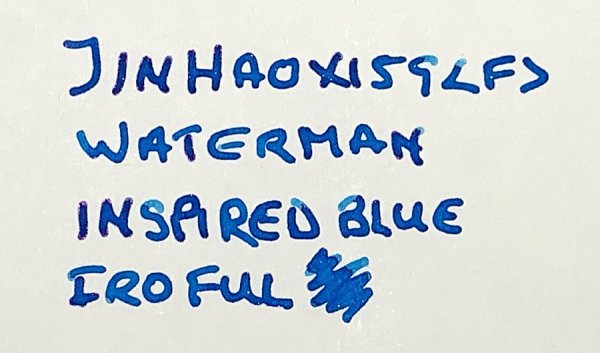 JINHAO X159 <F>
WATERMAN
INSPIRED BLUE
IROFUL